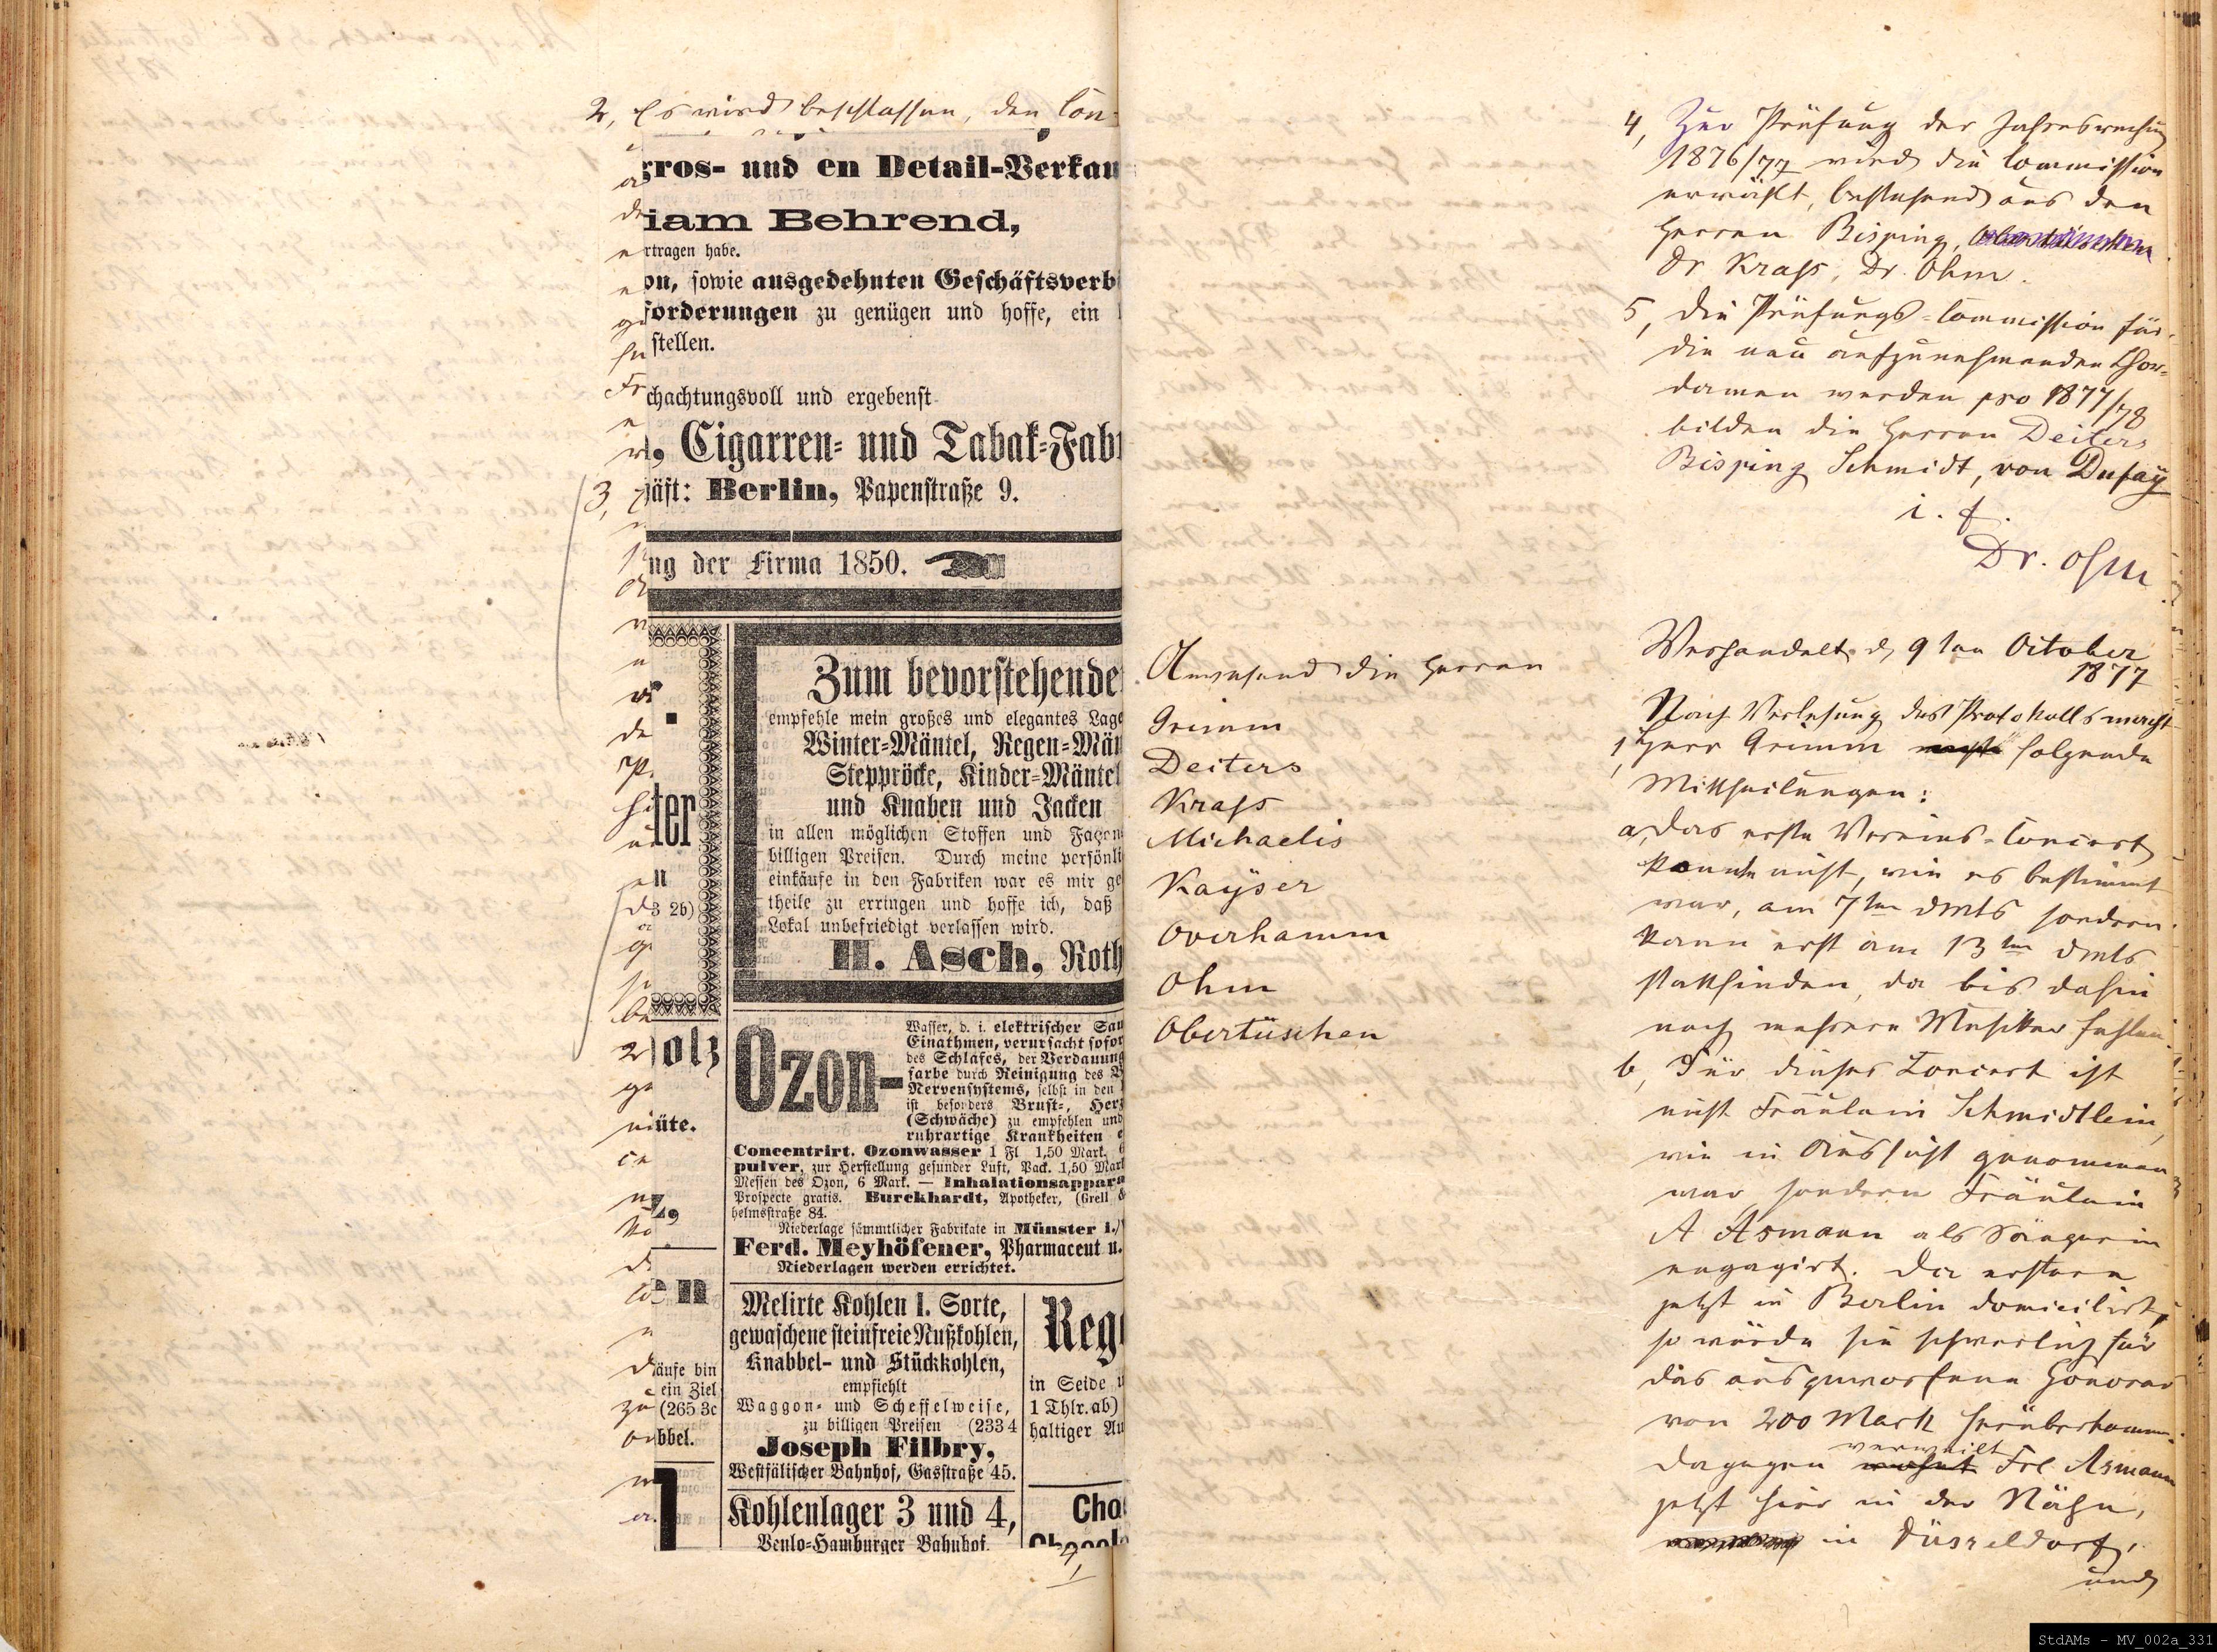 2, Es wird beschlossen, den Con-
gros- und en Detail-Verkau
iam Behrend,
rtragen habe.
on, sowie ausgedehnten Geschäftsverb
forderungen zu genügen und hoffe, ein
stellen.
chachtungsvoll und ergebenst
Cigarren- und Tabak-Fab
äft: Berlin, Papenstraße 9.
3,
ng der Firma 1850.
ter
3 2b)
olz
üte.
en
äufe bin
ein Ziel
(265 3c
bbel.
Zum bevorstehende
empfehle mein großes und elegantes Lage
Winter-Mäntel, Regen-Män
Steppröcke, Kinder-Mäntel
und Knaben und Jacken
in allen möglichen Stoffen und Façon
billigen Preisen. Durch meine persönli
einkäufe in den Fabriken war es mir ge
theile zu erringen und hoffe ich, daß
Lokal unbefriedigt verlassen wird.
H. Asch, Roth
Ozon-
Wasser, d. i. elektrischer Sau
Einathmen, verursacht sofor
des Schlafes, der Verdauung
farbe durch Reinigung des B
Nervensystems, selbst in den
ist besonders Brust-, Herz
(Schwäche) zu empfehlen und
ruhrartige Krankheiten
Concentrirt. Ozonwasser 1 Fl 1,50 Mark.
pulver, zur Herstellung gesunder Luft, Pack. 1,50 Mark
Messen des Ozon, 6 Mark. — Inhalationsappara
Prospecte gratis. Burckhardt, Apotheker, (Grell &
helmsstraße 84.
Niederlage sämmtlicher Fabrikate in Münster i./
Ferd. Meyhöfener, Pharmaceut u.
Niederlagen werden errichtet.
Melirte Kohlen I. Sorte,
gewaschene steinfreie Nußkohlen,
Knabbel- und Stückkohlen,
empfiehlt
Waggon- und Scheffelweise,
zu billigen Preisen (233 4
Joseph Filbry,
Westfälischer Bahnhof, Gasstraße 45.
Kohlenlager 3 und 4,
Venlo-Hamburger Bahnhof.
Reg
in Seide u
1 Thlr. ab)
haltiger Au
Cho
Chocol
4,
Anwesend die Herren
Grimm
Deiters
Krass
Michaelis
Kayser
Overhamm
Ohm
Obertüschen
4, Zur Prüfung der Jahresrechng
1876/77 wird die Commission
erwählt, bestehend aus den
Herren Bisping, Obertüschen
Dr Krass, Dr. Ohm.
5, Die Prüfungs-Commission für
die neu aufzunehmenden Chor-
damen werden pro 1877/78
bilden die Herren Deiters
Bisping Schmidt, von Dufay
i. f.
Dr. Ohm
Verhandelt d, 9ten October
1877
Nach Verlesung des Protokolls macht
1, Herr Grimm macht folgende
Mittheilungen:
a, das erste Vereins-Concert
konnte nicht, wie es bestimmt
war, am 7ten dmts sondern
kann erst am 13ten dmts
stattfinden, da bis dahin
noch mehrere Musiker fehlen.
b, Für dieses Concert ist
nicht Fräulein Schmidtlein,
wie in Aussicht genommen
war, sondern Fräulein
A Asmann als Sängerin
engagirt. Da erstere
jetzt in Berlin domicilirt,
so würde sie schwerlich für
das ausgeworfene Honorar
von 200 Mark herüberkommen.
verweilt
Dagegen wohnt Frl Asmann
jetzt hier in der Nähe,
in Düsseldorf,
und
StdAMs - MV_002a_331